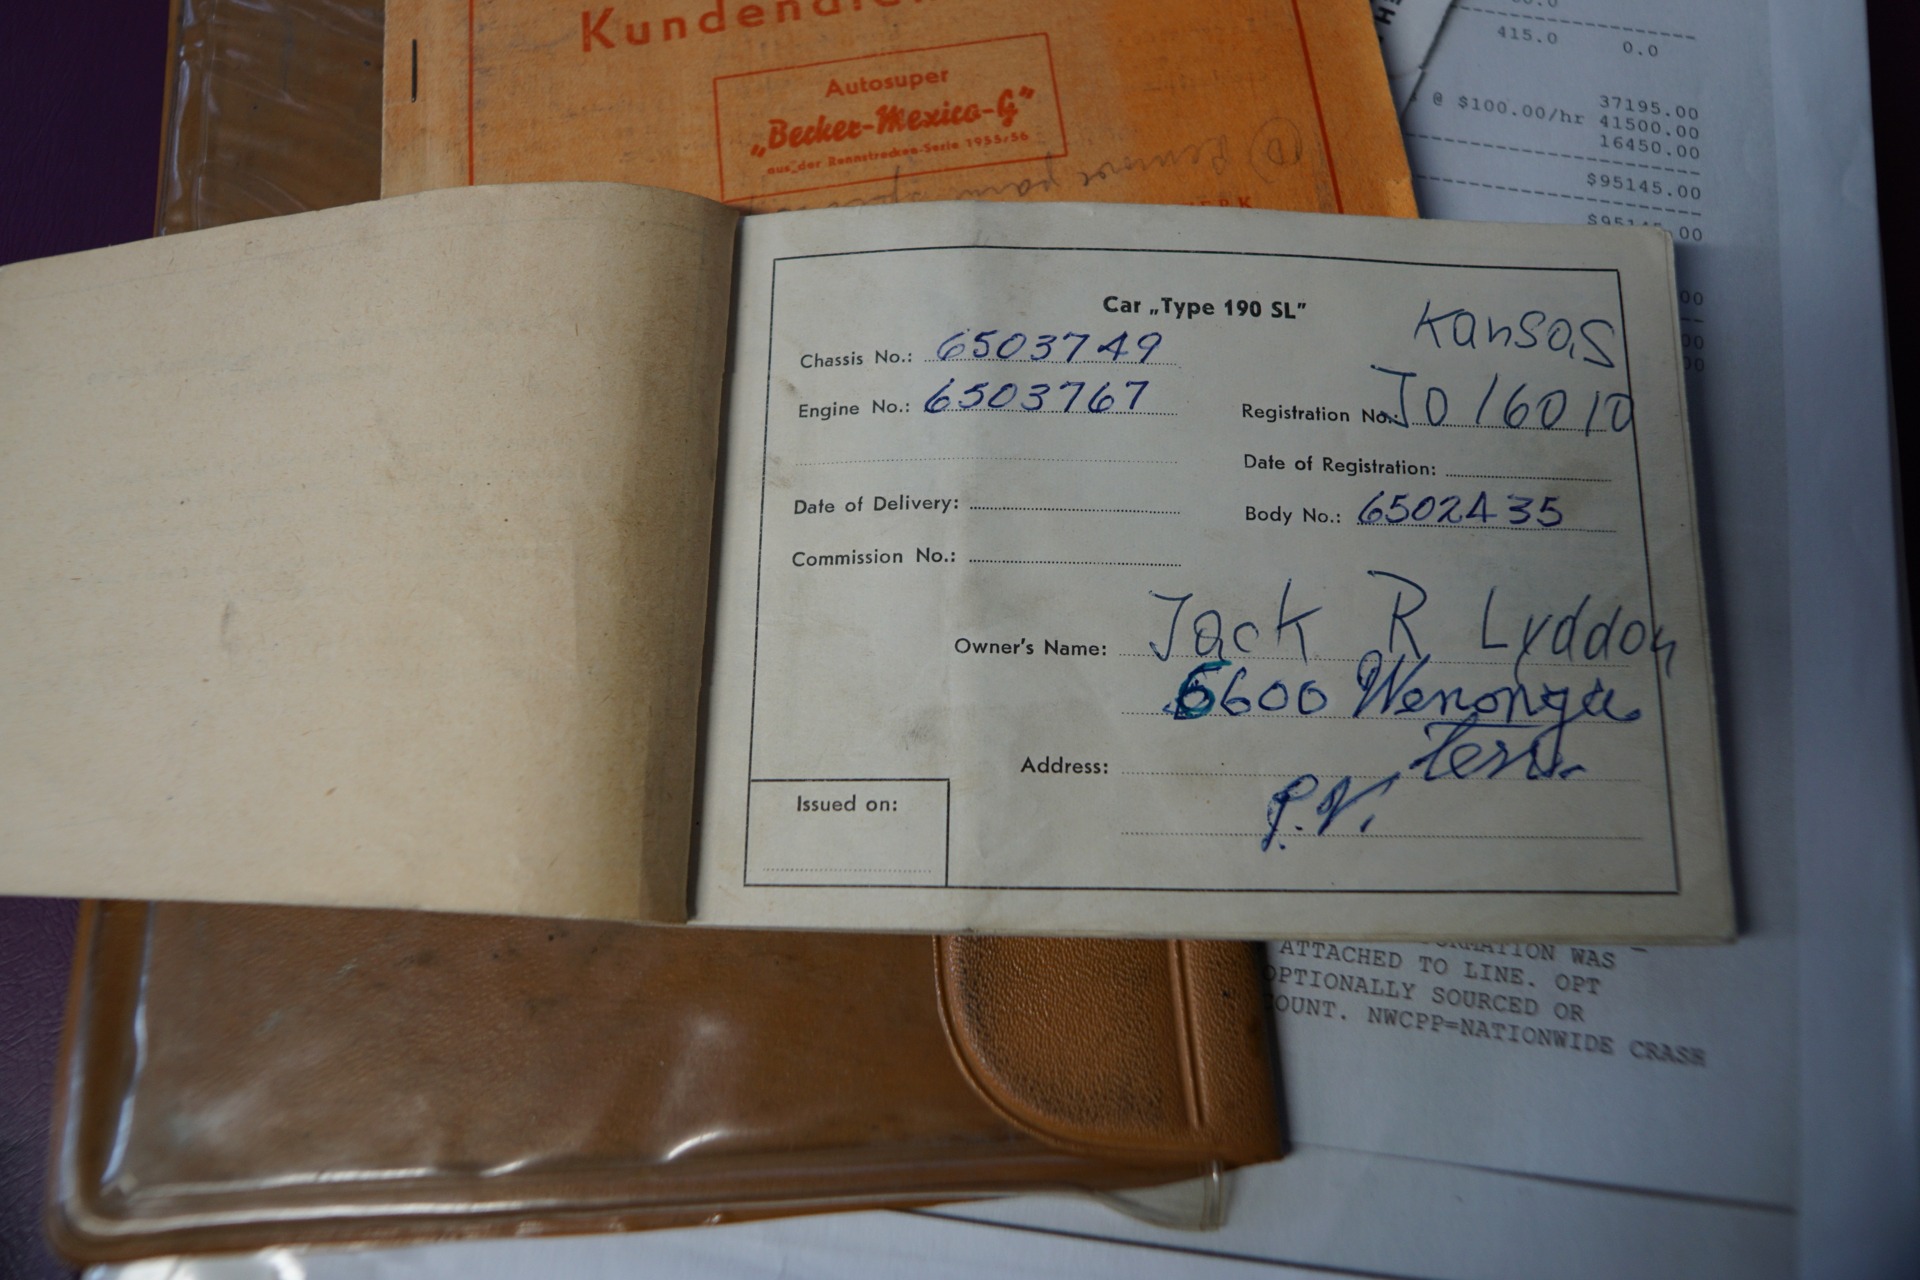 Autosuper
„Becker-Mexico-G"
aus der Rennstrecken-Serie 1955/56
415.0 0.0
37195.00
@ $100.00/hr 41500.00
16450.00
$95145.00
Car „Type 190 SL"
Kansas
Chassis No.: 6503749
Engine No.: 6503767
Registration No.: JO 16010
Date of Registration:
Date of Delivery:
Body No.: 6502435
Commission No.:
Owner's Name: Jack R Lyddon
6600 Wenonga
Terr.
Address:
P.V.
Issued on:
WAS
ATTACHED TO LINE. OPT
OPTIONALLY SOURCED OR
NWCPP=NATIONWIDE CRASH